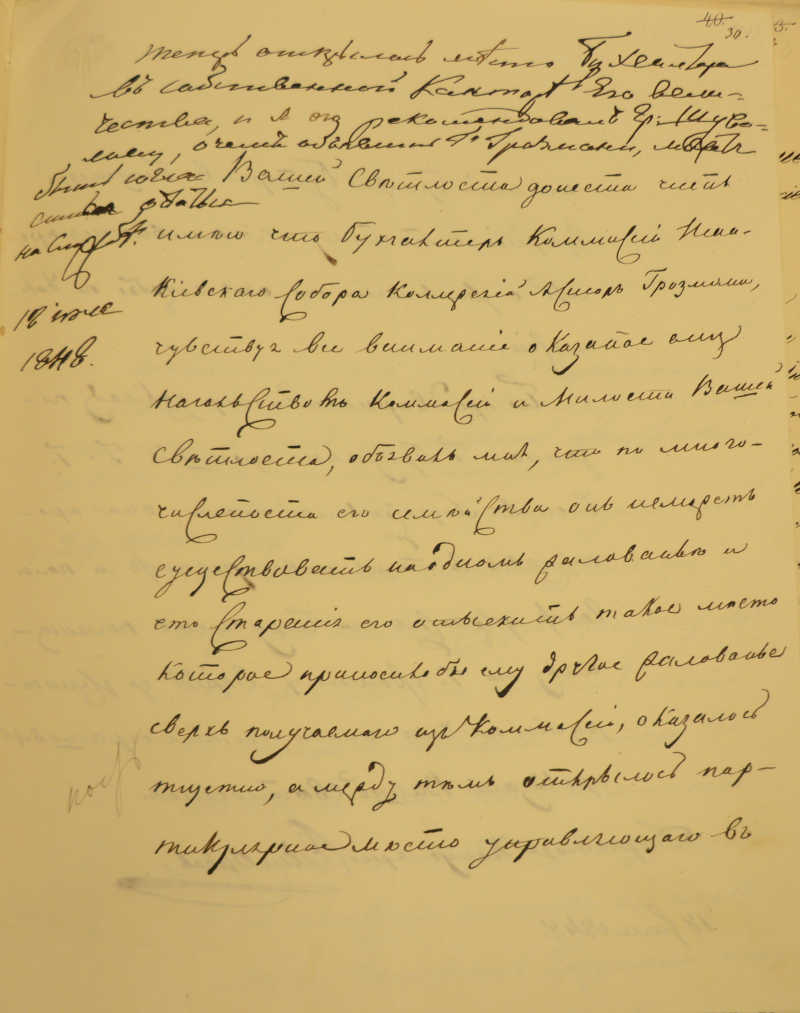 40.
30.
теперь открылось место Бухгалтера
въ собственной Канторѣ Его Вели-
чества, и я его рекомендовалъ Гр. Шува-
лову, о чемъ объявилъ Г. Грозмани, можетъ
быть
на Службѣ.
18 іюля
1848.
Вашей Свѣтлости донести честь
имѣю что Бухгалтеръ Коммисіи Исаа-
кіевскаго Собора Коллежскій Асесоръ Грозмани,
чувствуя все вниманіе оказаное ему
Начальствомъ Коммисіи и Милости Вашей
Свѣтлости, объявилъ мнѣ, что по много-
числености его семейства онъ неможетъ
существовать на одномъ жалованьѣ и
что Стареніе его отыскить такое место
которое приносилобы ему другое жалованье
сверхъ получаемаго изъ Коммисіи, оказалось
тщетно, а между темъ открылось пар-
тикулярное место управляющаго въ